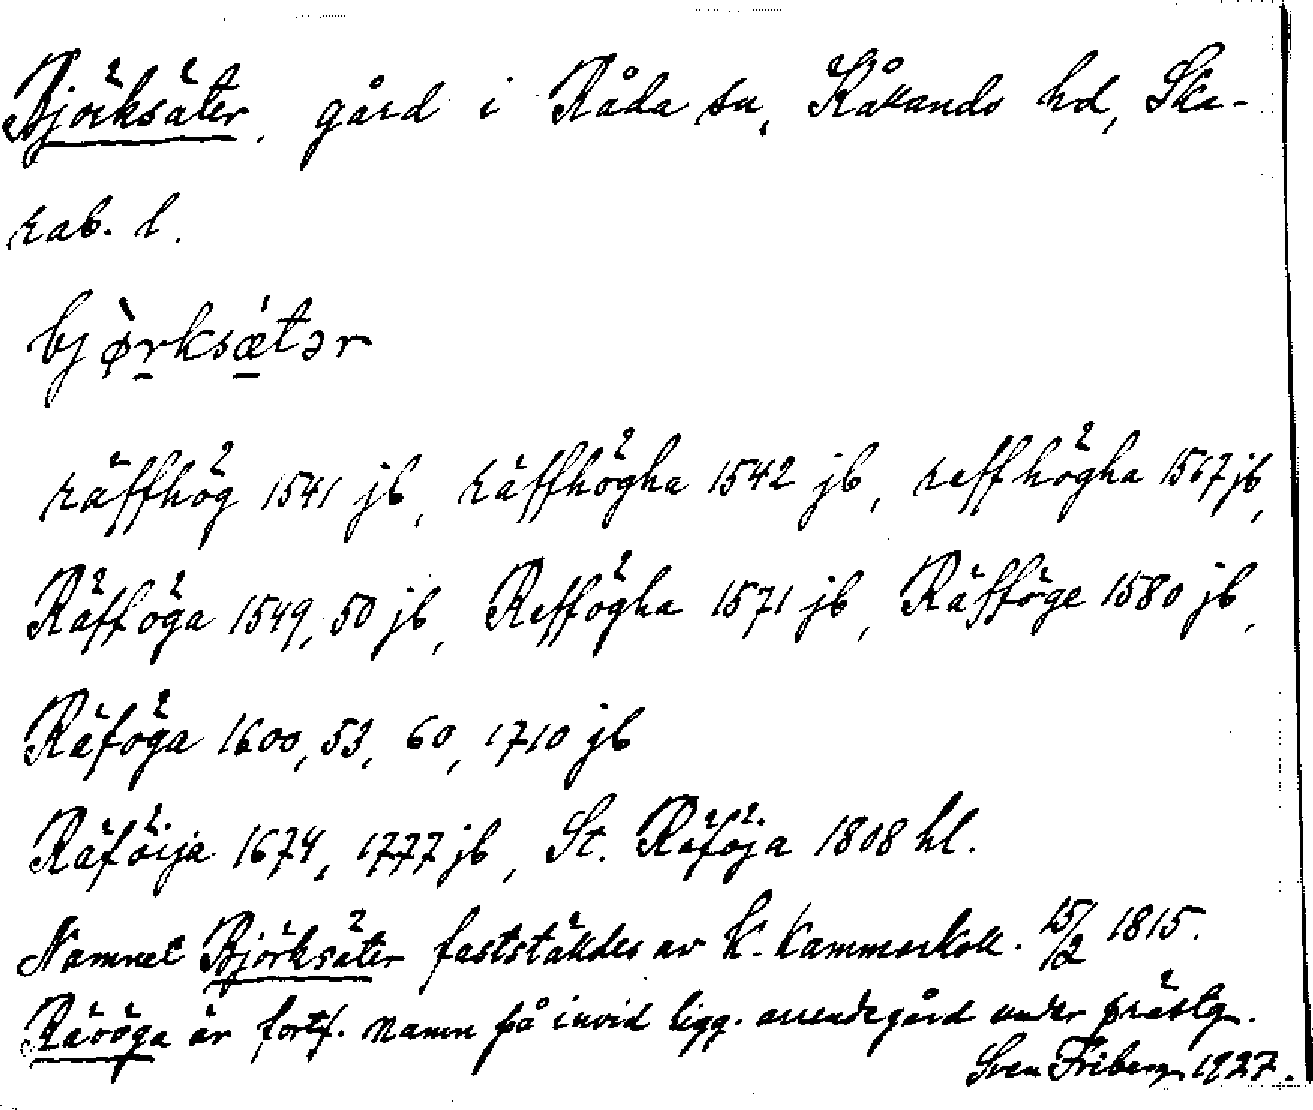 Björksäter, gård i Råda sn, Kållands hd, Ska-
rab. l.
bjø̀rksǽtər
räffhög 1541 jb, räffhögha 1542 jb, reffhögha 1567 jb,
Räfföga 1549, 50 jb, Reffögha 1571 jb, Räfföge 1580 jb,
Räföga 1600, 53, 60, 1710 jb
Räföija 1674, 1777 jb, St. Räföja 1808 hl.
Namnet Björksäter fastställdes av K. Kammarkoll. 15/2 1815.
Rävöga är fortf. namn på invid ligg. arrendegård under prästg.
Sven Friberg 1927.